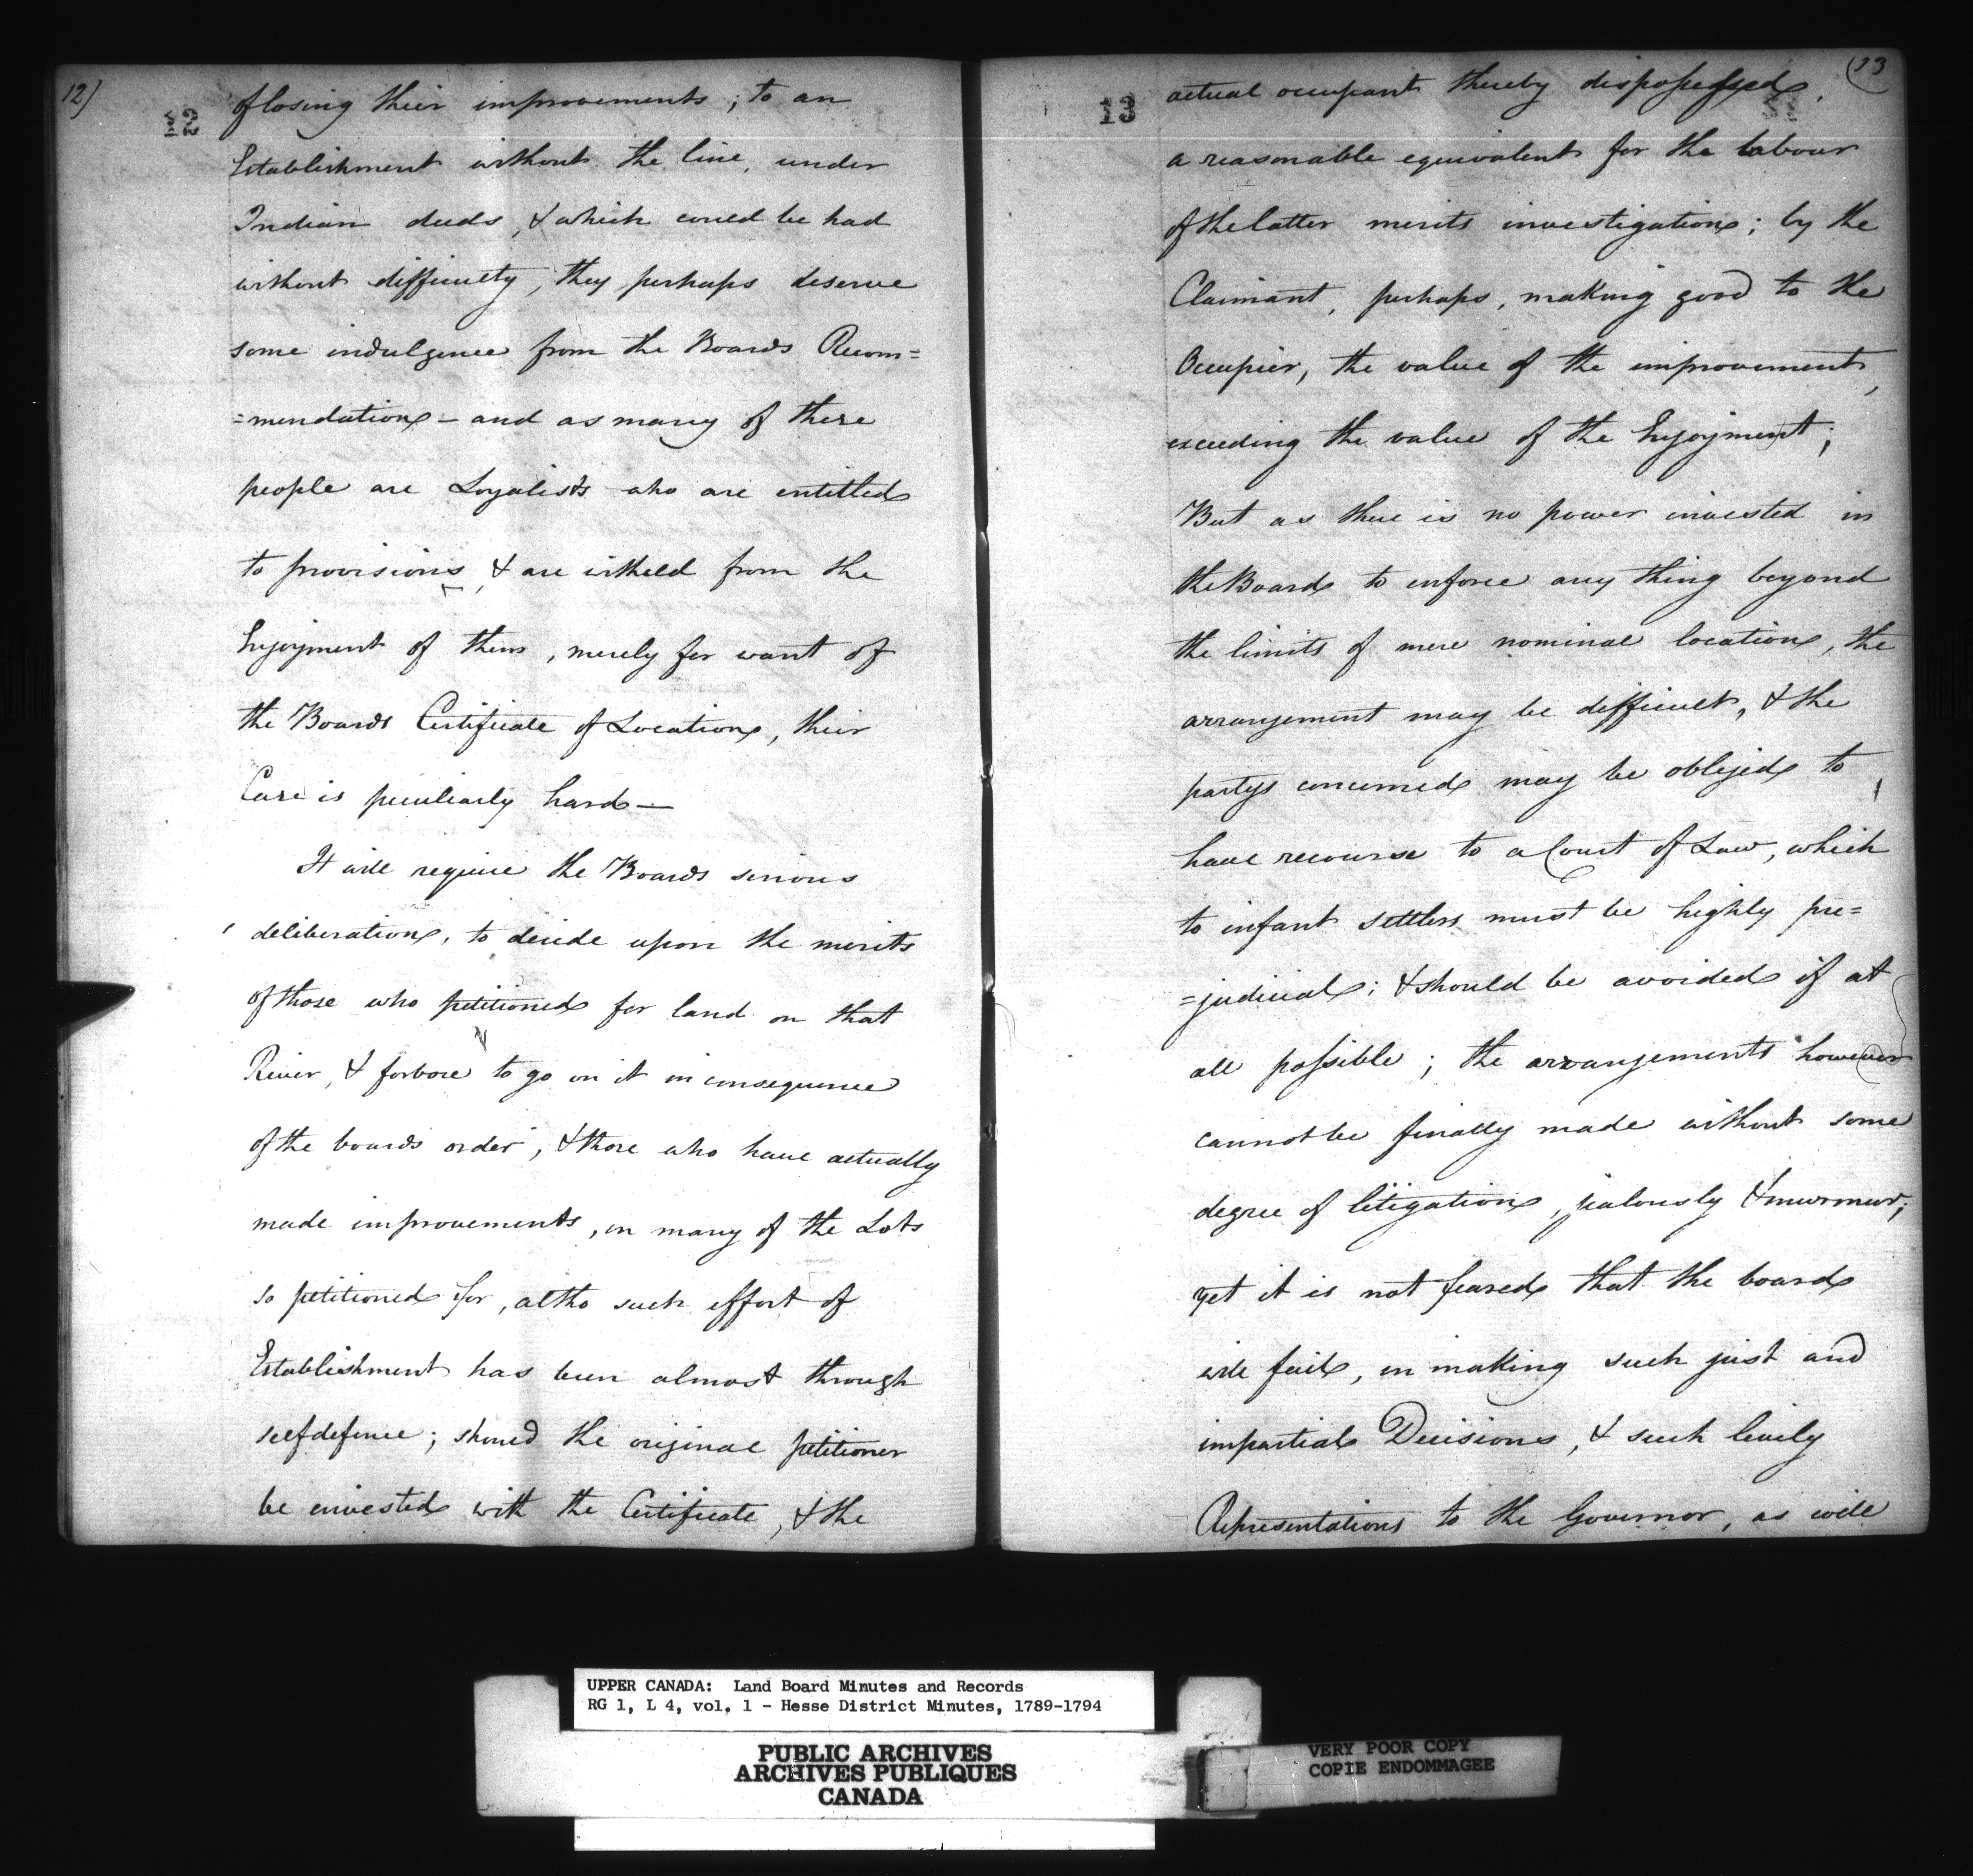 12)
12
of losing their improvements; to an
Establishment without the line, under
Indian deeds, & which could be had
without difficulty, they perhaps deserve
some indulgence from the Boards Recom=
=mendation - and as many of these
people are Loyalists who are entitled
to provisions, & are witheld from the
Enjoyment of them, merely for want of
the Boards Certificate of Location, their
Case is peculiarly hard—
It will require the Boards serious
deliberation, to decide upon the merits
of those who petitioned for land on that
River, & forbore to go on it in consequence
of the boards order, & those who have actually
made improvements, on many of the Lots
so petitioned for, altho such effort of
Establishment has been almost through
selfdefence; should the original petitioner
be invested with the Certificate, & the
(13
13
actual occupant thereby dispossessed,
a reasonable equivalent for the labour
of the latter merits investigation; by the
Claimant, perhaps, making good to the
Occupier, the value of the improvement,
exceeding the value of the Enjoyment;
But as there is no power invested in
the Board to enforce any thing beyond
the limits of mere nominal location, the
arrangement may be difficult, & the
partys concerned may be obliged to
have recourse to a Court of Law, which
to infant settlers must be highly pre=
=judicial; & should be avoided if at
all possible; the arrangements however
cannot be finally made without some
degree of litigation, jealously & murmur;
yet it is not feared that the board
will fail, in making such just and
impartial Decisions, & such lively
Representations to the Governor, as will
UPPER CANADA: Land Board Minutes and Records
RG 1, L 4, vol. 1 - Hesse District Minutes, 1789-1794
PUBLIC ARCHIVES
ARCHIVES PUBLIQUES
CANADA
VERY POOR COPY
COPIE ENDOMMAGEE